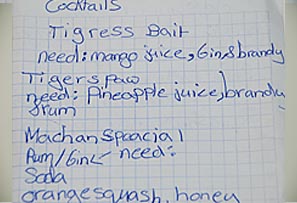 Cocktails
Tigress Bait
need: mango juice, Gin & brandy
Tigerspaw
need: Pineapple juice, brandy
& rum
Machan Spaacial
Rum/Gin need:
Soda
orange squash, honey